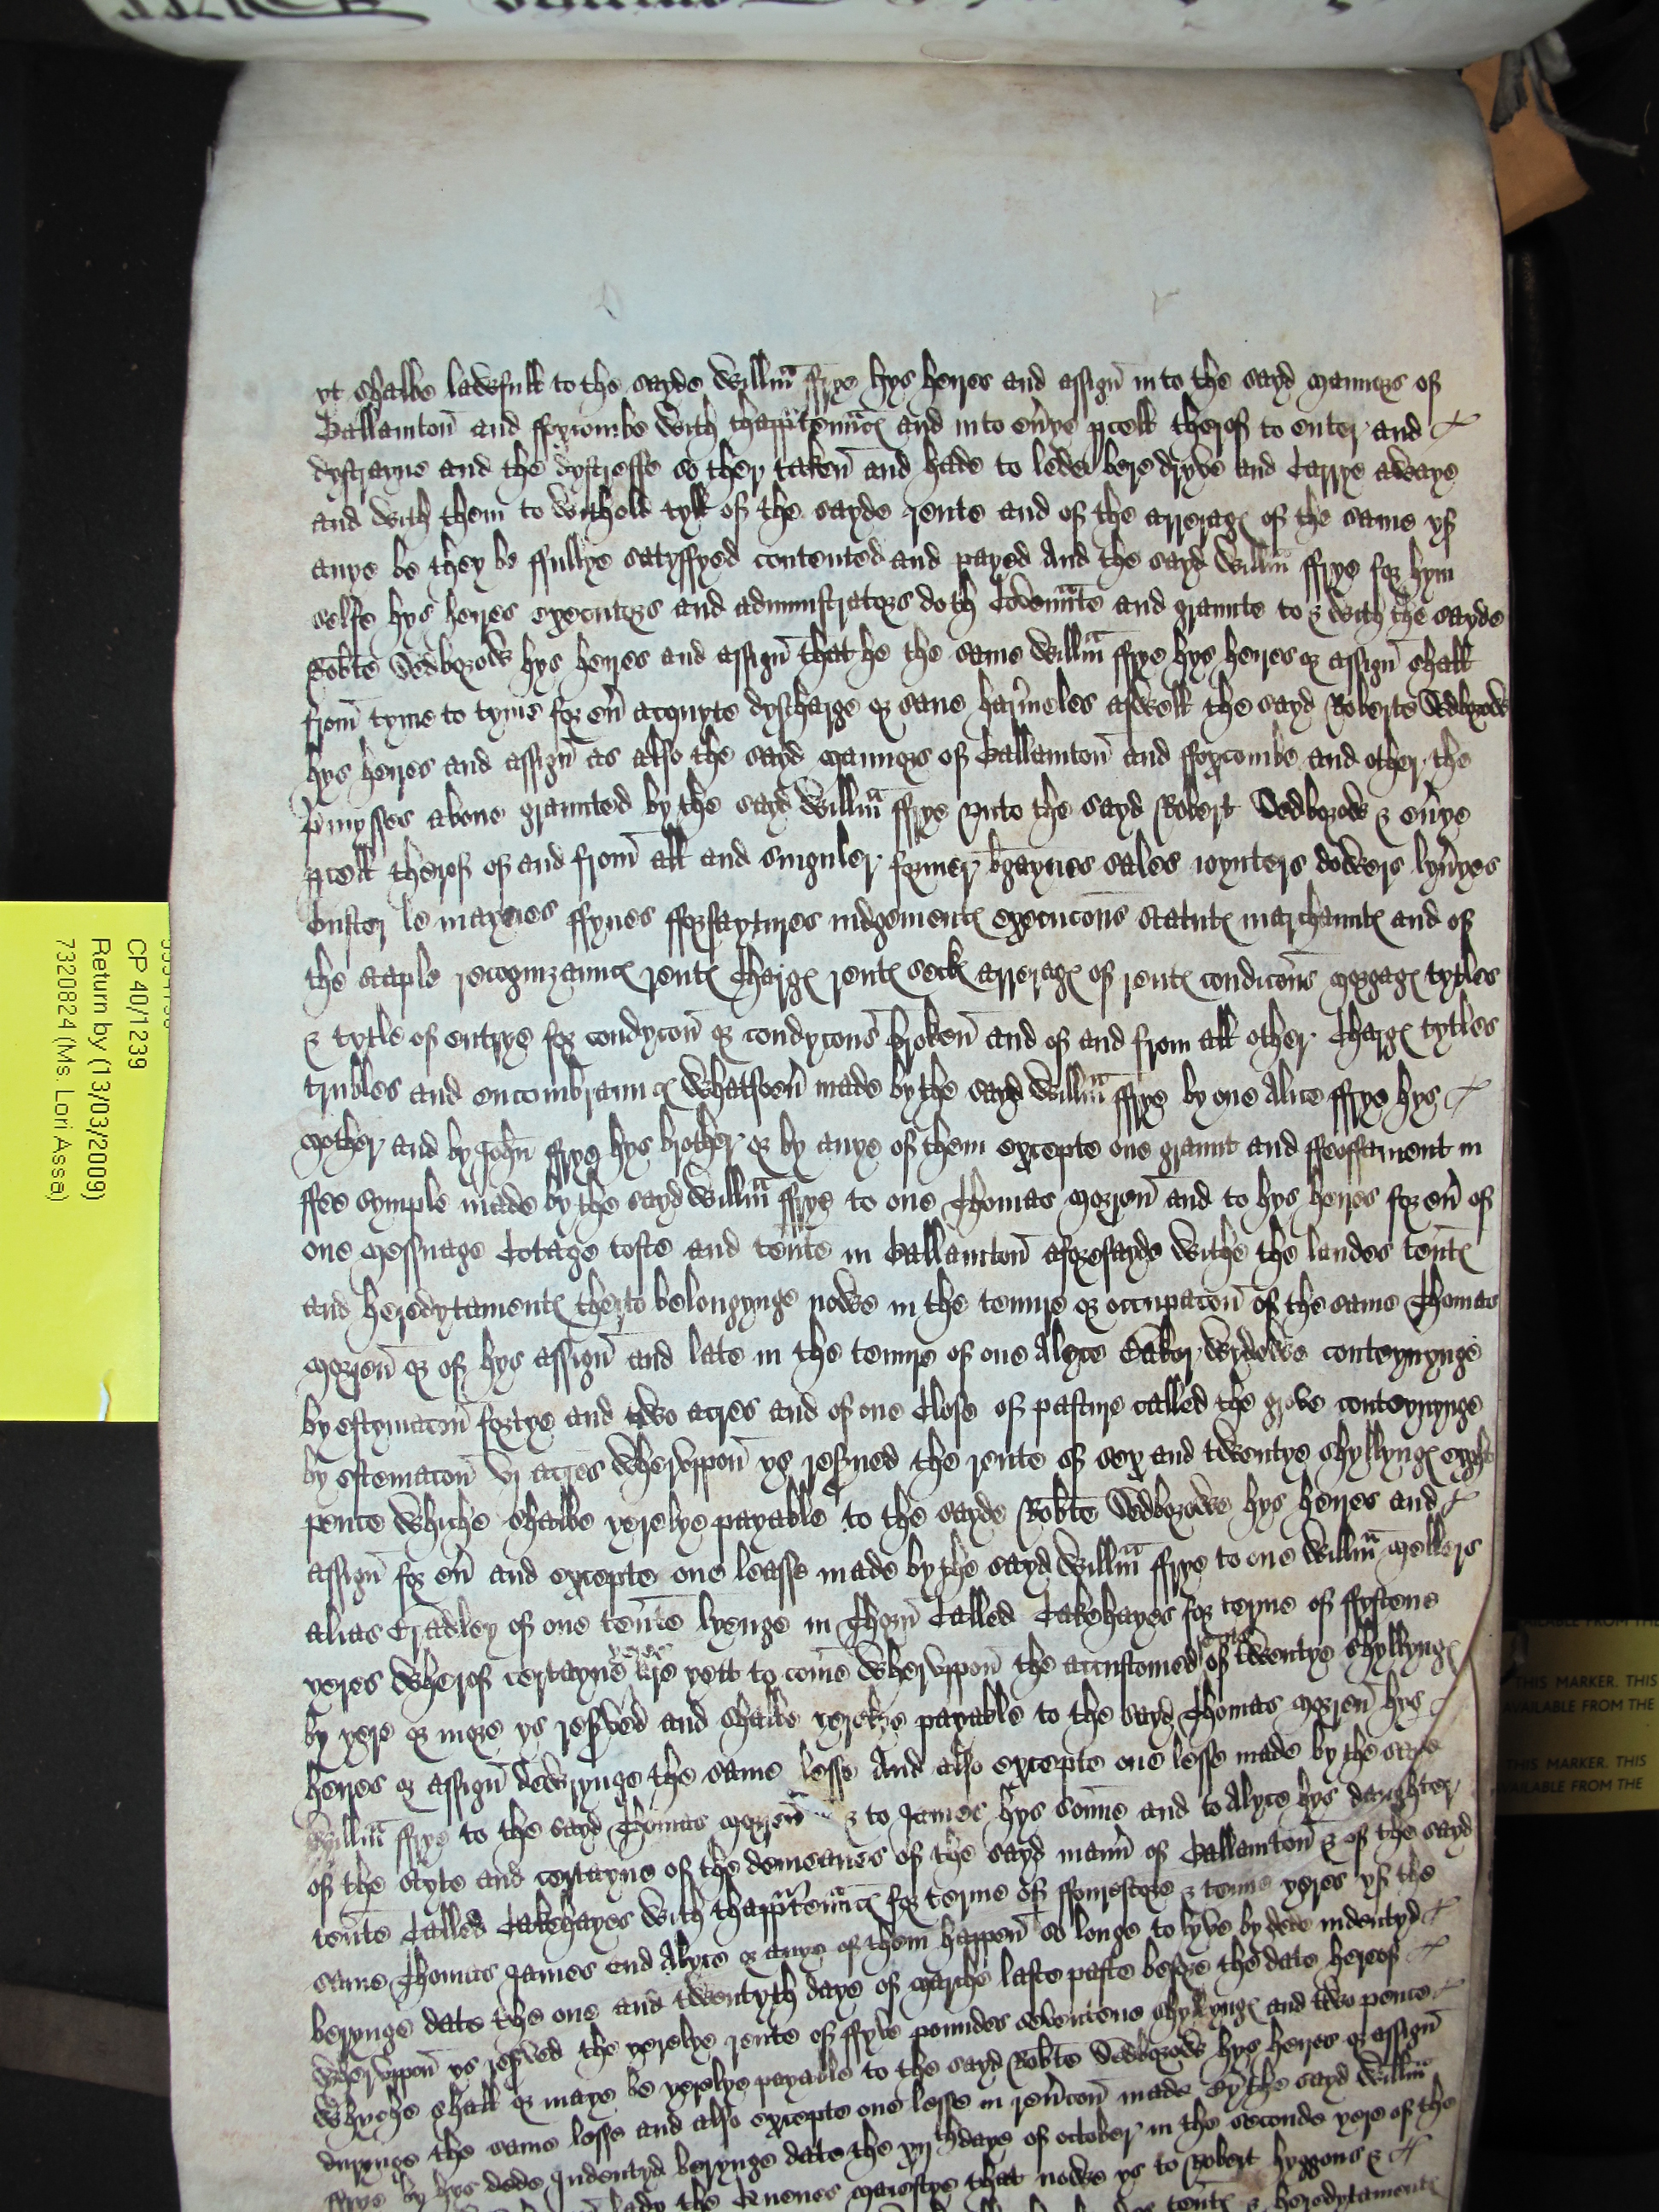 yt shalbe lawfull to the sayde Willm̄ ffrye hys heyres and assign̄ in to the sayd mannors of
Ballamton̄ and ffoxcombe with thapp̄tenn̄c͡ and in to eū̄ye p̱cell therof to enter and
dystrayne and the dystresse so ther taken̄ and hade to lede bere dryve and Carrye awaye
and with them to withold tyll of the sayde rente and of the arrerag͡ of the same yf
anye be they be ffullye satysffyed contented and payed And the sayd Willm̄ ffrye for hym
selfe hys heyres executors and admynistrators doth Covenn̄te and graunte to & with the sayde
Rob̄te Dedborow hys heyres and assign̄ that he the same Willm̄ ffrye hys heyres or assign̄ shall
from̄ tyme to tyme for eū̄ acquyte dyscharge or save harmeles aswell the sayd Roberte Dedborow
hys heyres and assign̄ as also the sayd mannors of Ballamton̄ and ffoxcombe and other the
p̄mysses above graunted by the sayd Willm̄ ffrye vnto the sayd Robert Dedborow & eū̄ye
p̱cell therof of and from̄ all and singuler former bgaynes sales ioynters dowers lyū̄yes
ouster le maynes ffynes fforfaytures iudgement͡ execucōns statut͡ marchaunt͡ and of
the staple recognizaunc͡ rent͡ Charg͡ rent͡ seck arrerag͡ of rent͡ condicōns morgag͡ tytles
& tytle of entrye for condycon̄ or condycons̄ broken̄ and of and from all other Charg͡ tytles
trubles and encombraunc͡ whatsoeū̄ made by the sayd Willm̄ ffrye by one Alice ffrye hys
mother and by John̄ ffrye hys brother or by anye of them excepte one graunt and ffeoffament in
ffee symple made by the sayd Willm̄ ffrye to one Thomas moren̄ and to hys heyres for eū̄ of
one messuage Cotage tofte and ten̄te in Ballamton̄ aforesayde withe the landes ten̄t͡
and heredytament͡ therto belongynge nowe in the tenure or occupacōn of the same Thomas
moren̄ or of hys assign̄ and late in the tenure of one Alyce Baker wydowe conteynynge
by estymacōn fortye and two acres and of one Close of pasture called the grove conteynynge
by estemacōn vj acres wheruppon̄ ys reserued the rente of sex and twentye shyllyng͡ eyght
pence whiche shalbe yerelye payable to the sayde Rob̄te Dedborowe hys heyres and
assign̄ for eū̄ and excepte one leasse made by the sayd Willm̄ ffrye to one Willm̄ mellers
alias Cradley of one ten̄te lyenge in Thorn̄ Called Cakehayes for terme of ffyftene
yeres wherof certayne yeres are yett to com̄e wheruppon̄ the accustomed rente of twentye shyllyng͡
by yere or more ys resved and shalbe yerelye payable to the sayd Thomas moren̄ hys
heyres or assign̄ dewrynge the same lesse And also excepte one lesse made by the sayd
Willm̄ ffrye to the sayd Thomas moren̄ & to James hys sonne and to Alyce hys daughter
of the scyte and certayne of the demeanes of the sayd mann̄ of Ballamton̄ & of the sayd
ten̄te Called Cakehayes with thapp̄tenn̄c͡ for terme of ffourescore & tenne yeres yf the
same Thomas James and Alyce or anye of them happen̄ so longe to lyve by dede indentyd
berynge date the one and twentyth daye of marche laste paste before the date hereof
wheruppon̄ ys resved the yerelye rente of ffyve poundes seventene shyllyng͡ and two pence
whyche shall or maye be yerelye payable to the sayd Rob̄te Dedborow hys heyres or assign̄
durynge the same lesse and also excepte one lesse in reū̄con̄ made by the sayd Willm̄
ffrye by hys dede Indentyd berynge date the daye of october in the seconde yere of the
lady the Quenes maiestye that nowe ys to Robert hyggons &
ten̄t͡ & heredytament͡
CP 40/1239
Return by (13/03/2009)
7320824 (Ms. Lori Assa)
AVAILABLE FROM THE
THIS MARKER. THIS
AVAILABLE FROM THE
THIS MARKER. THIS
AVAILABLE FROM THE